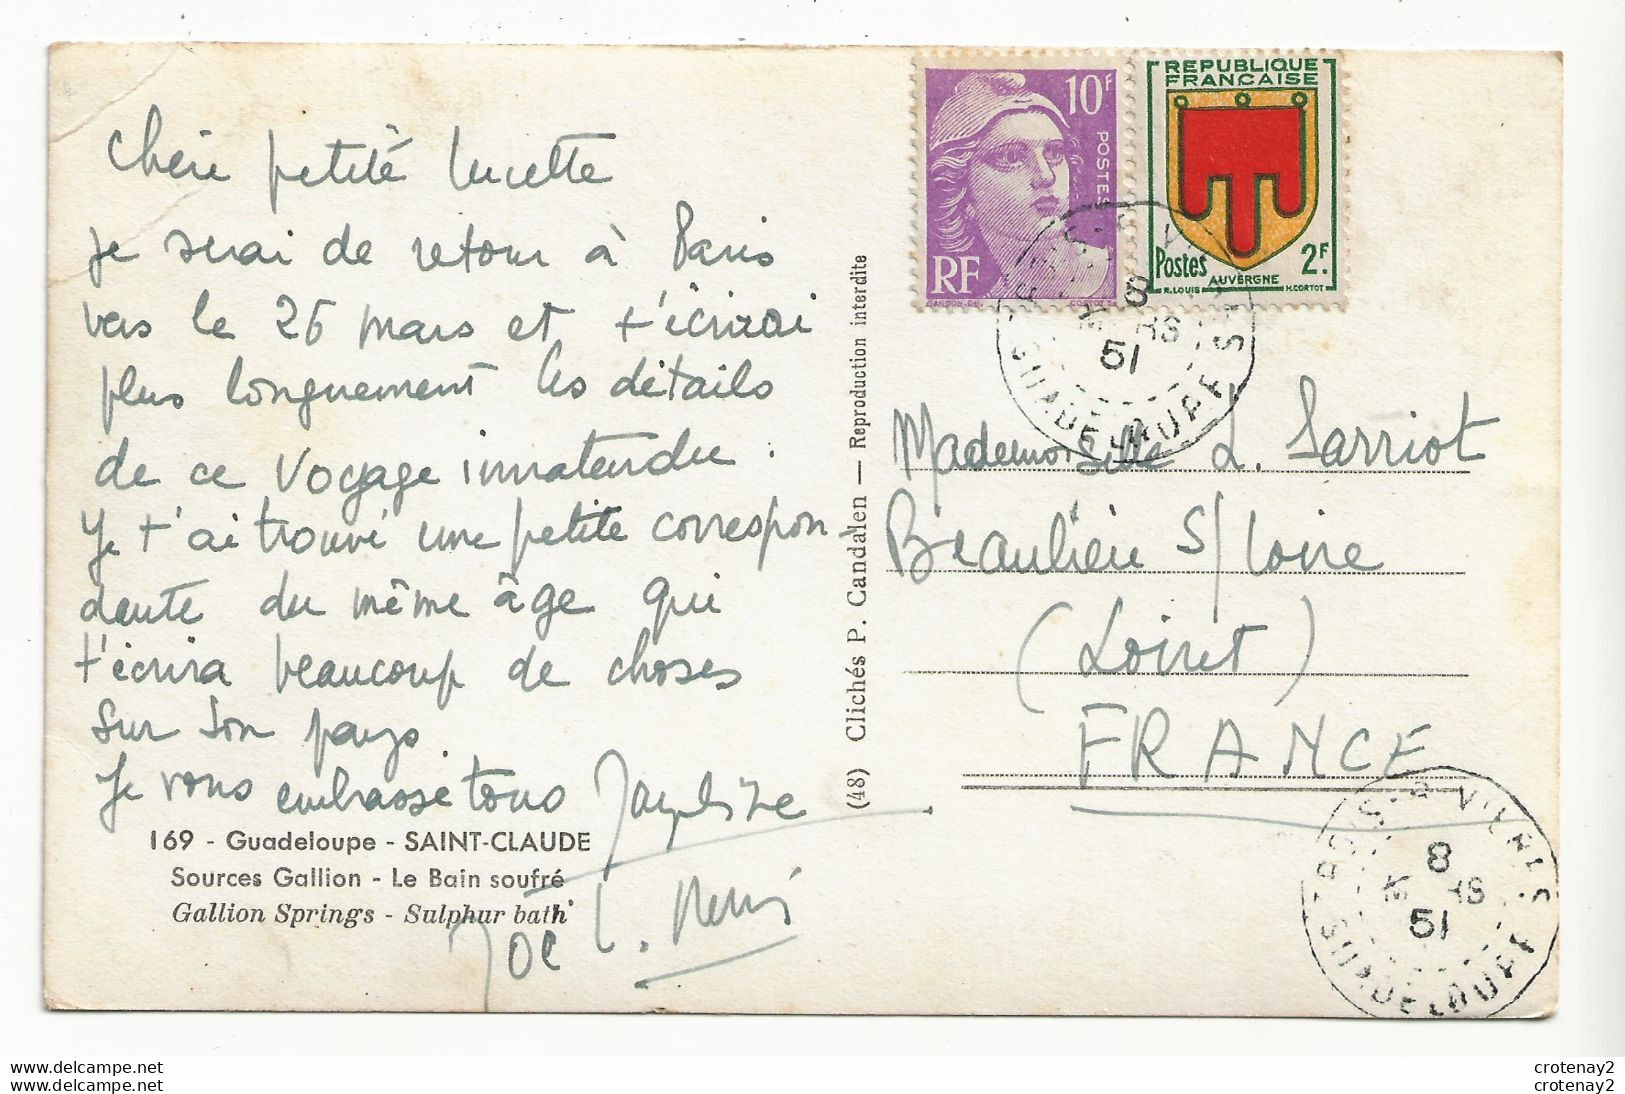 Chère petite Lucette
je serai de retour à Paris
vers le 25 mars et t'écrirai
plus longuement les détails
de ce voyage innatendu.
Je t'ai trouvé une petite correspon-
dante du même âge qui
t'écrira beaucoup de choses
sur son pays
Je vous embrasse tous
169 - Guadeloupe - SAINT-CLAUDE
Sources Gallion - Le Bain soufré
Gallion Springs - Sulphur bath
(48) Clichés P. Candalen — Reproduction interdite
10F
POSTES
RF
REPUBLIQUE
FRANCAISE
Postes 2F.
AUVERGNE
R. LOUIS H. CORTOT
8
51
GUADELOUPE
Mademoiselle L. Sarriot
Beaulieu s/ Loire
(Loiret)
FRANCE
8
51
GUADELOUPE
crotenay2
crotenay2
crotenay2
crotenay2